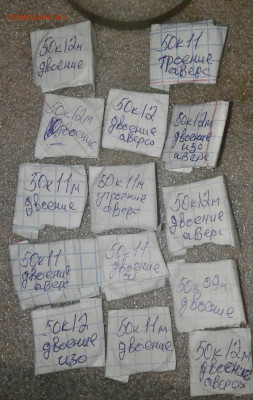 50к12м
двоение
50к11
троение
аверс
50к12м
двоение
50к12
двоение
аверс
50к12м
двоение
изо
аверс
50к11м
двоение
50к11м
троение
аверс
50к12м
двоение
аверс
50к11
двоение
аверс
50к11
двоение
50к09м
двоение
50к12
двоение
изо
50к11м
двоение
50к12м
двоение
аверс